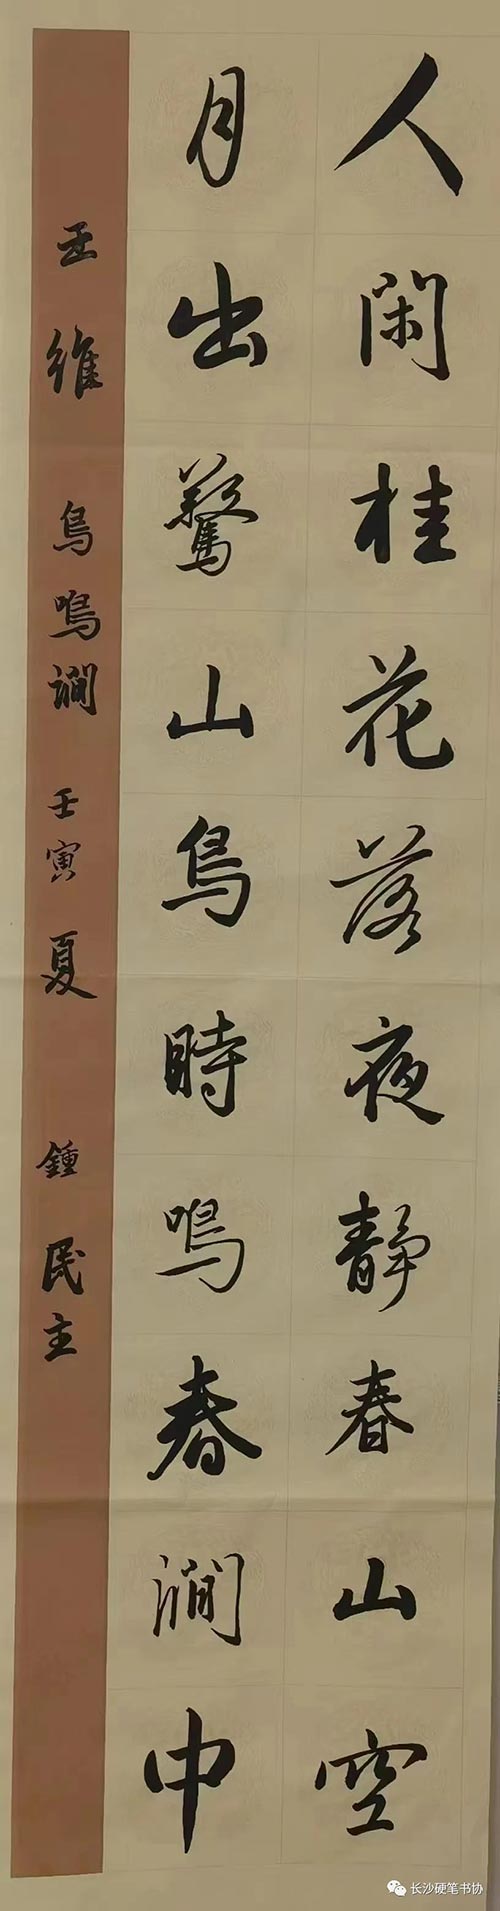 人閑桂花落夜静春山空
月出驚山鳥時鳴春澗中
王維 鳥鳴澗 壬寅夏 鍾民主
长沙硬笔书协